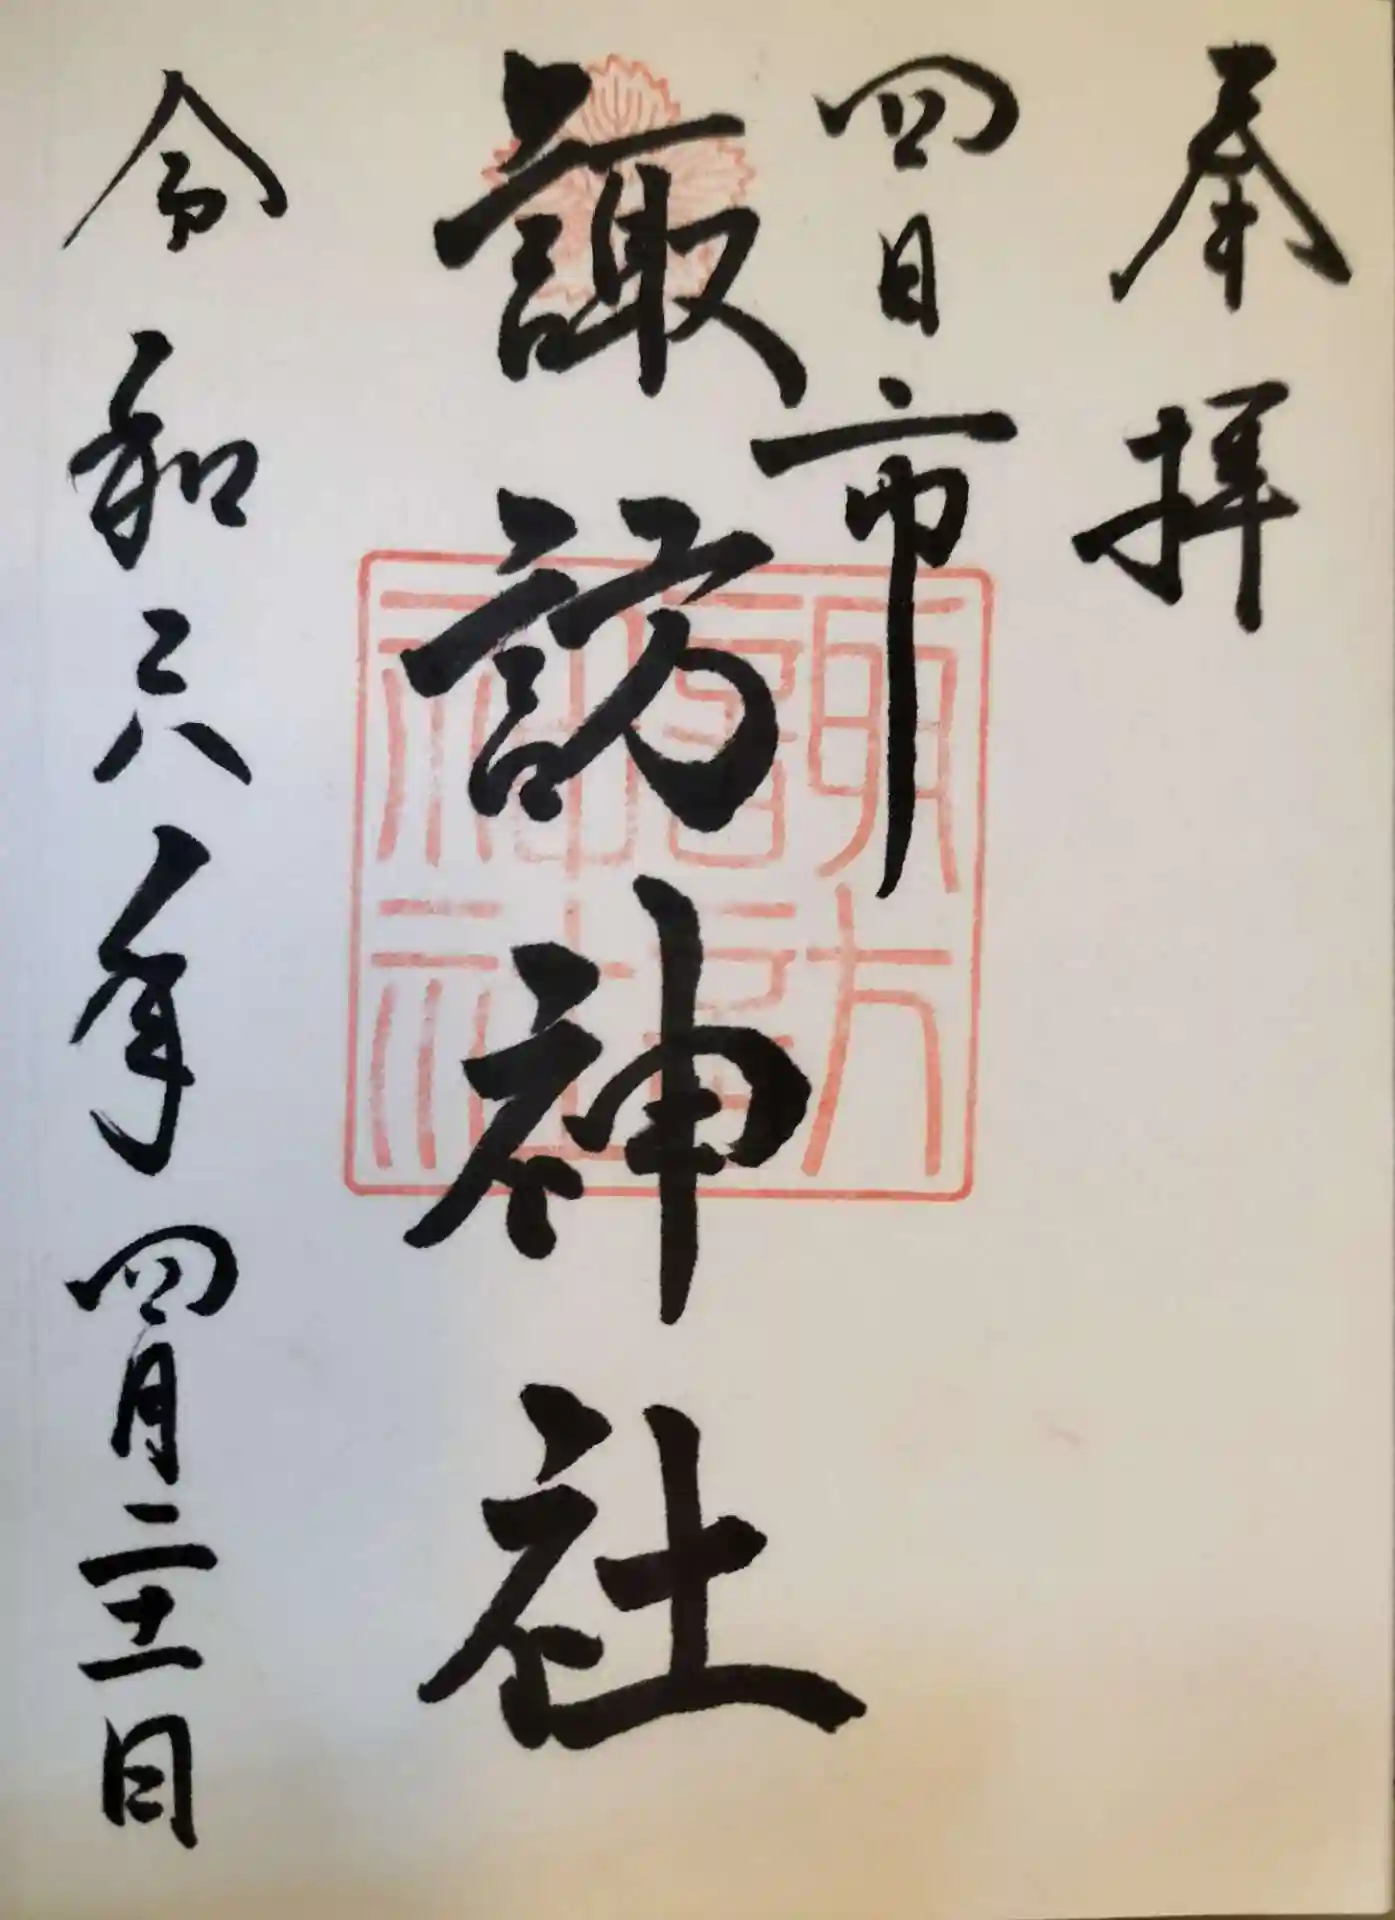 奉拝
四日市
諏訪神社
令和六年四月二十二日
諏訪神社